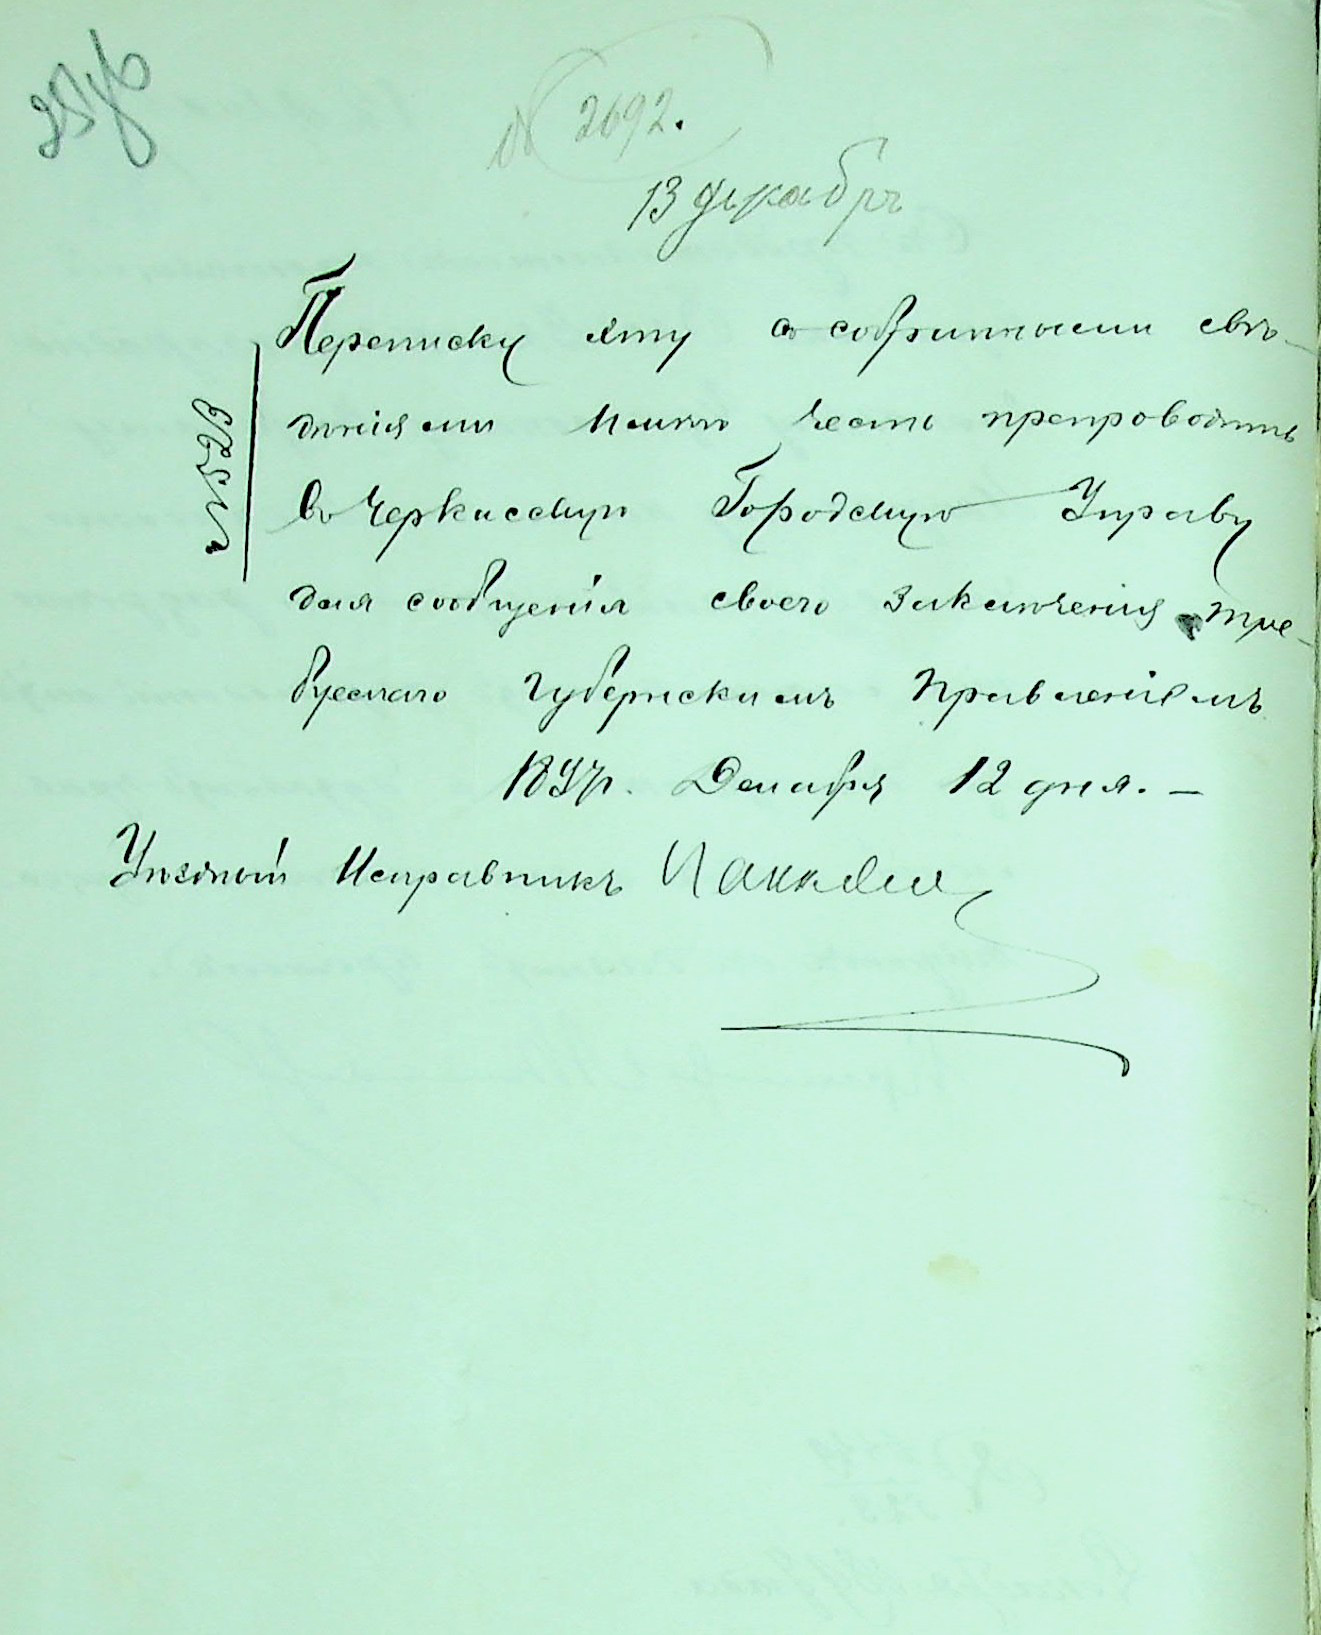 2692.
13 декабря
Переписку эту со собранными свѣ-
дѣніями имѣю честь препроводить
въ Черкасскую Городскую Управу
для сообщенія своего заключенія тре-
буемаго Губернскимъ Правленіемъ
1897 г. Декабря 12 дня. —
Уѣздный Исправникъ